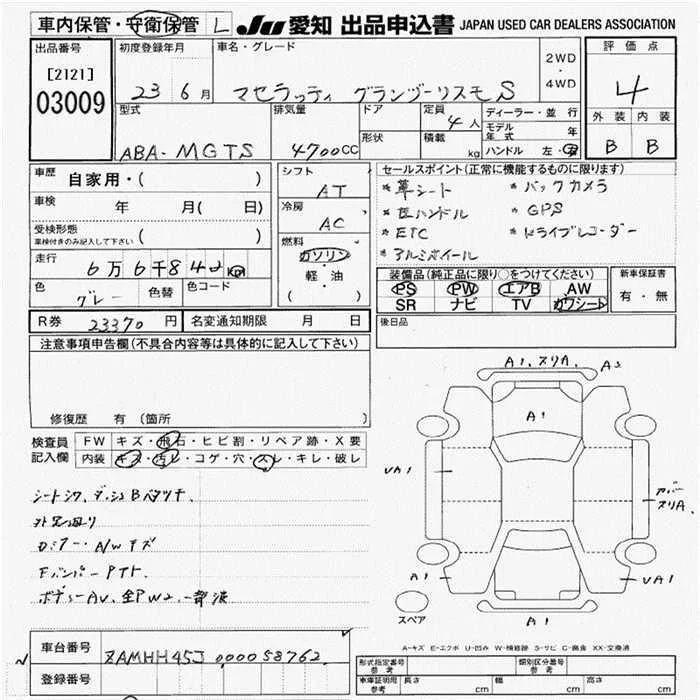 車内保管・守衛保管 L JU 愛知 出品申込書 JAPAN USED CAR DEALERS ASSOCIATION
出品番号
[2121]
03009
初度登録年月
23 6月
車名・グレード
マセラッティ グランツーリスモS
2WD
・
4WD
評価点
4
外装 内装
B B
型式
ABA-MGTS
排気量
4700CC
ドア
形状
定員
4人
積載
kg
ディーラー・並行
モデル年式 年
ハンドル 左・右
車歴 自家用・( )
車検 年 月( 日)
受検形態
車検付きのみ記入して下さい ( )
走行 6万6千842km
色 グレー 色替 色コード
シフト
AT
冷房
AC
燃料
ガソリン
・
軽・油
( )
セールスポイント(正常に機能するものに限ります)
*革シート *バックカメラ
*左ハンドル *GPS
*ETC *ドライブレコーダー
*アルミホイール
装備品(純正品に限り○をつけてください)
PS PW エアB AW
SR ナビ TV カワシート
新車保証書
有・無
後日品
R券 23370円 名変通知期限 月 日
注意事項申告欄(不具合内容等は具体的に記入して下さい)
修復歴 有(箇所 )
検査員記入欄
FW キズ・飛石・ヒビ割・リペア跡・X要
内装 キズ・汚レ・コゲ・穴・スレ・キレ・破レ
シートシワ、ダッシュBベタツキ
Dミラー・A/Wキズ
FバンパーPタト.
A1.スリA. A3
A1
UA1
カバースリA.
A1
UA1
A1
スペア
A=キズ E=エクボ U=凹み W=補修跡 S=サビ C=腐食 XX=交換済
車台番号 ZAMHH45J 000058762
登録番号
形式指定番号
参考
類別区分番号
参考
車庫証明用
参考
長さ cm 幅 cm 高さ cm